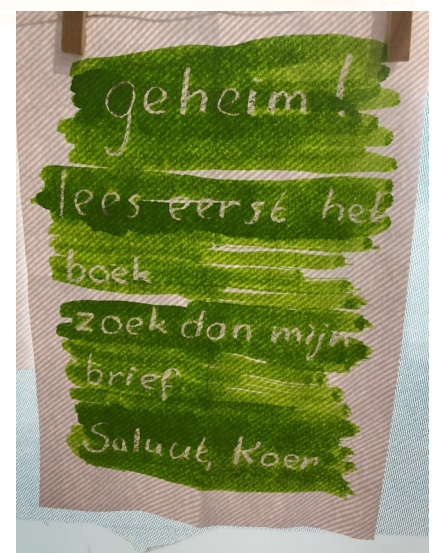 geheim!
lees eerst het
boek
zoek dan mijn
brief
Saluut, Koer